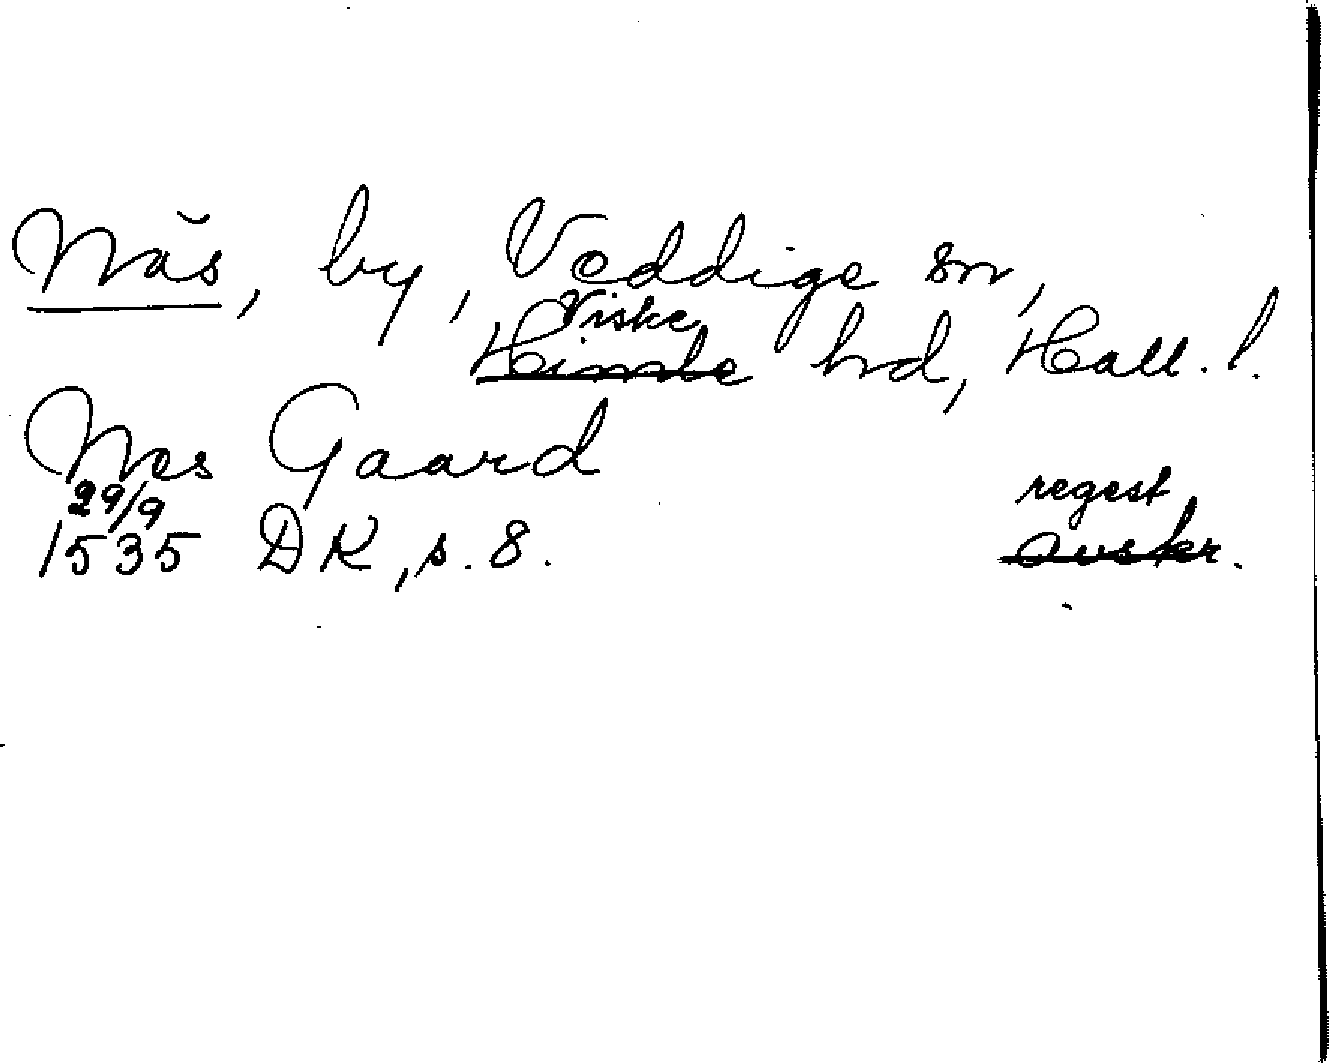 Näs, by, Veddige sn,
Viske
Himle hd, Hall. l.
Nes Gaard
29/9
1535 DK, s. 8.
regest
avskr.